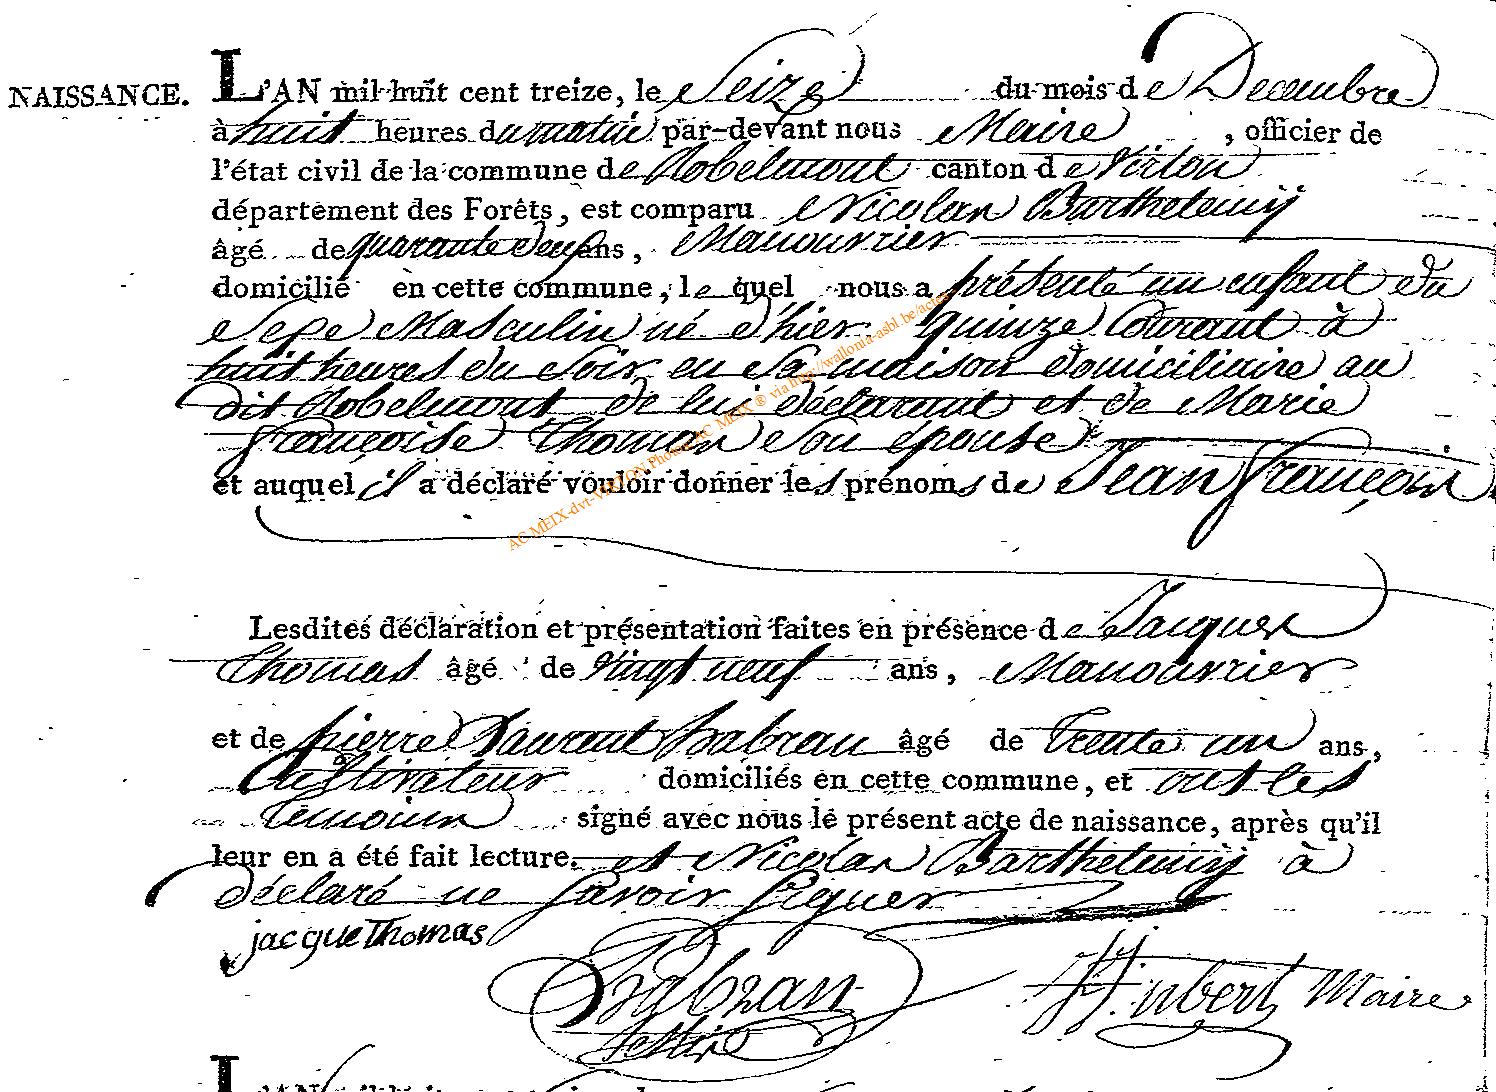 NAISSANCE. L'AN mil huit cent treize, le Seize du mois de Decembre
à huit heures du matin par-devant nous Maire, officier de
l'état civil de la commune de Robelmont canton de Virton
département des Forêts, est comparu Nicolas Barthelemij
âgé de quarante deux ans, Manouvrier
domicilié en cette commune, le quel nous a présenté un enfant du
Sexe Masculin né d'hier quinze Courant à
huit heures du Soir en Sa maison domiciliaire au
dit Robelmont de lui déclarant et de Marie
françoise Thomas Son épouse
et auquel il a déclaré vouloir donner les prénoms de Jean françois
AC MEIX-dvt-VIRTON Photos AC MEIX ® via http://wallonia-asbl.be/actes
Lesdites déclaration et présentation faites en présence de Jacques
Thomas âgé de vingt neuf ans, Manouvrier
et de pierre Laurent habran âgé de Trente un ans,
Cultivateur domiciliés en cette commune, et ont les
Temoins signé avec nous le présent acte de naissance, après qu'il
leur en a été fait lecture. et Nicolas Barthelemij à
déclaré ne Savoir Signer
jacque Thomas
habran
H. hubert Maire
L'AN